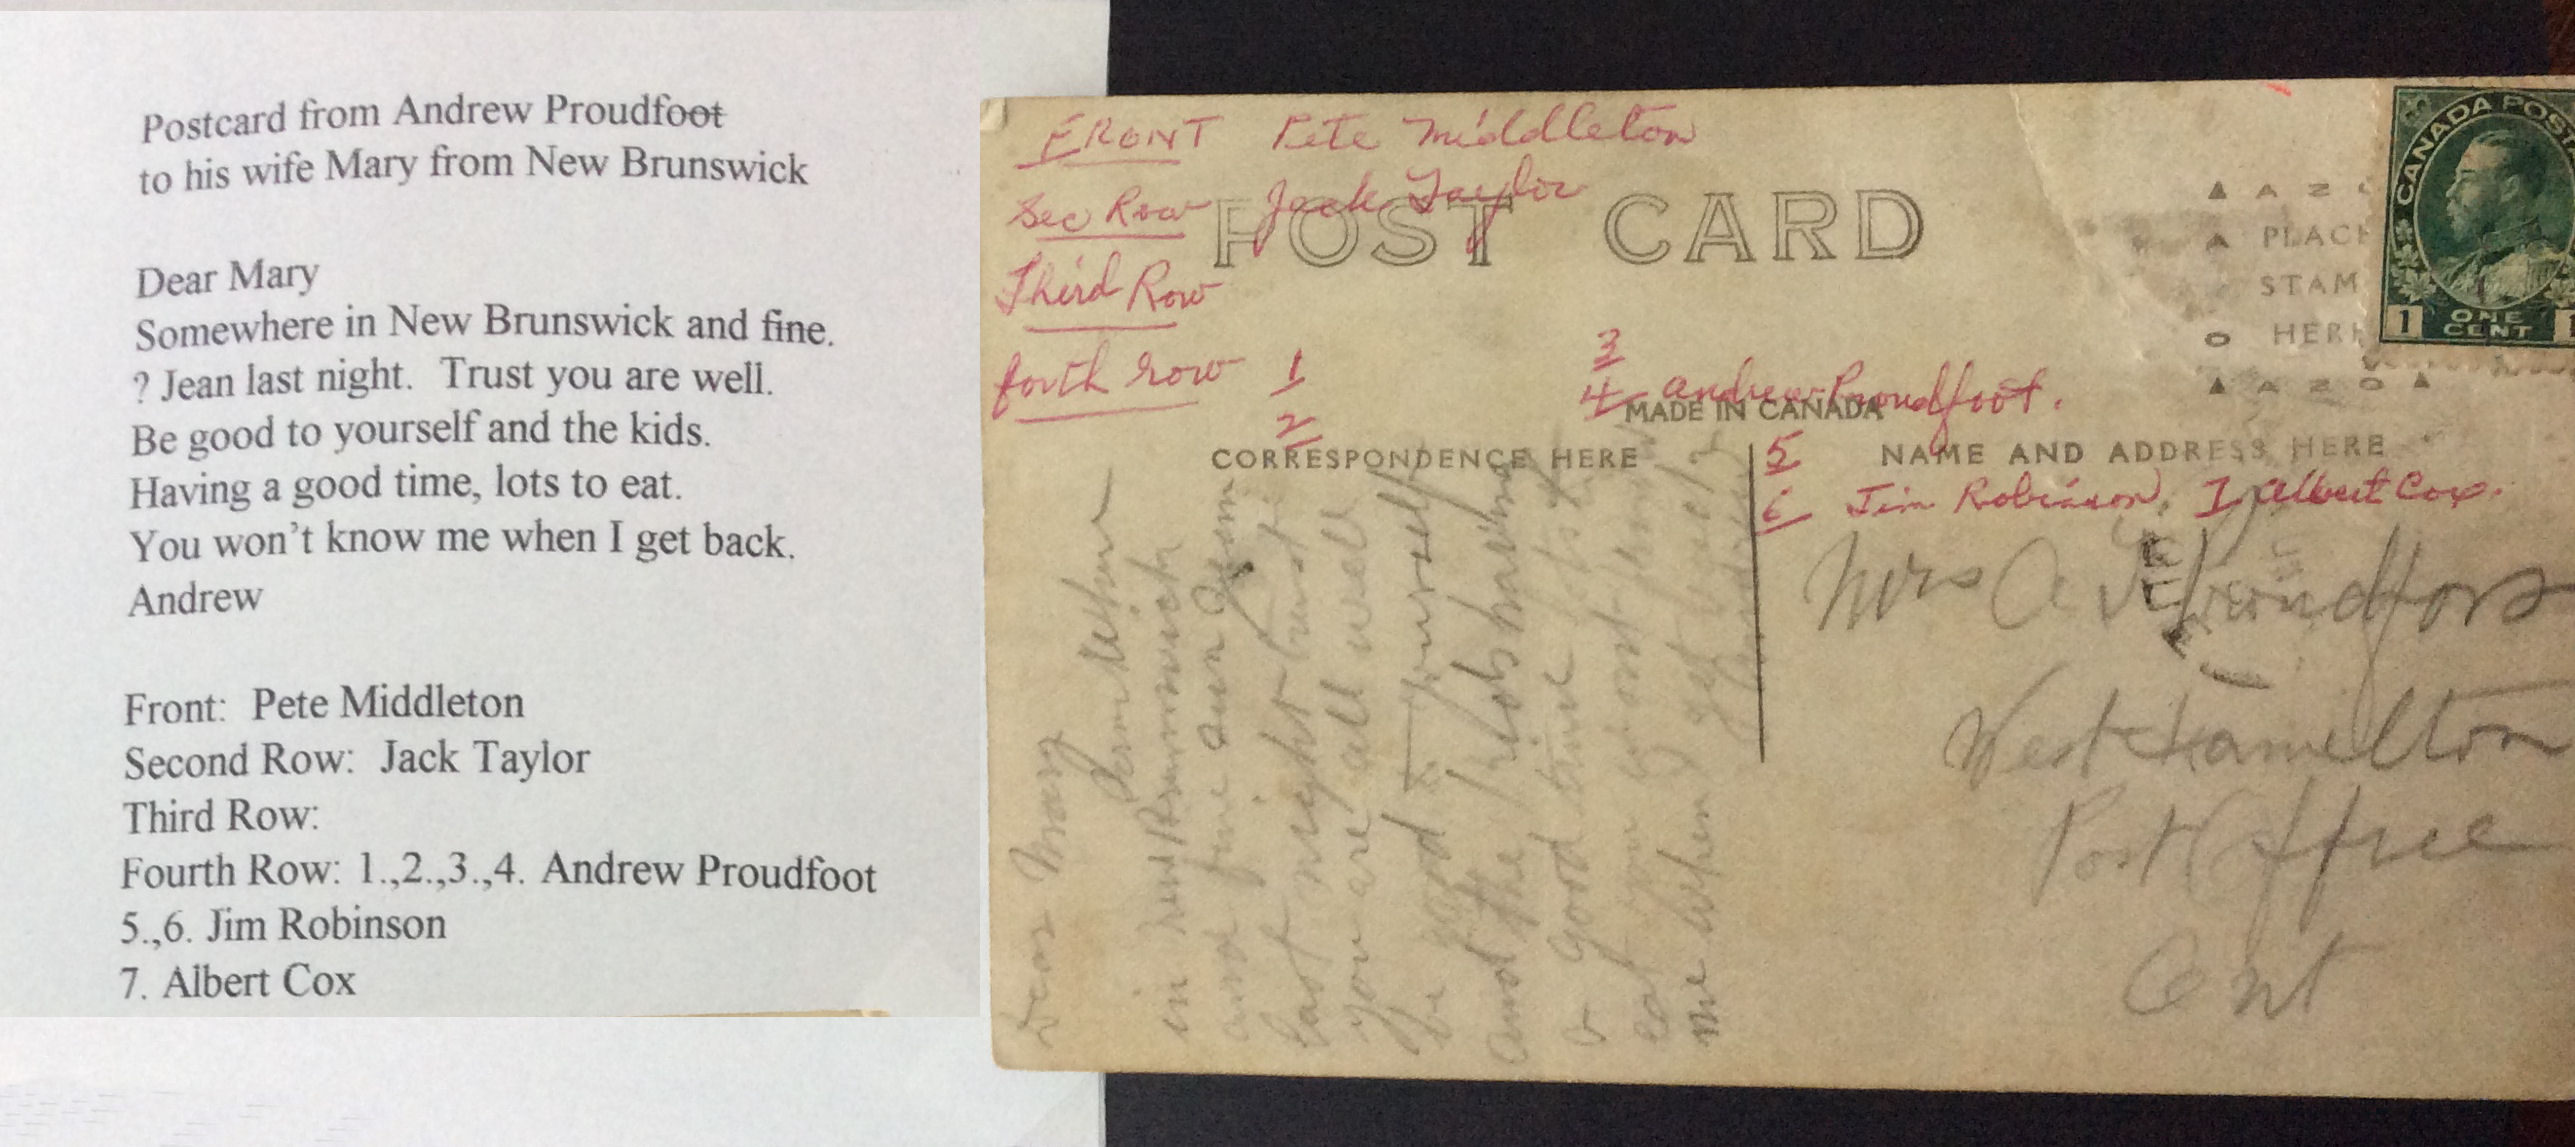 Postcard from Andrew Proudfoot
to his wife Mary from New Brunswick
Dear Mary
Somewhere in New Brunswick and fine.
? Jean last night. Trust you are well.
Be good to yourself and the kids.
Having a good time, lots to eat.
You won't know me when I get back.
Andrew
Front: Pete Middleton
Second Row: Jack Taylor
Third Row:
Fourth Row: 1.,2.,3.,4. Andrew Proudfoot
5.,6. Jim Robinson
7. Albert Cox
FRONT Pete Middleton
Sec Row Jack Taylor
Third Row
forth row 1
2
3
4 Andrew Proudfoot.
5
6 Jim Robinson, 7 Albert Cox.
POST CARD
MADE IN CANADA
CORRESPONDENCE HERE
NAME AND ADDRESS HERE
AZO
PLACE
STAM
HERE
AZO
CANADA POSTA
1 ONE CENT 1
Dear Mary
Somewhere
in New Brunswick
and fine Jean
last night trust
you are all well
be good to yourself
and the kids having
a good time lots to
eat you wont know
me when I get back
Andrew
Mrs A Proudfoot
West Hamilton
Post Office
Ont